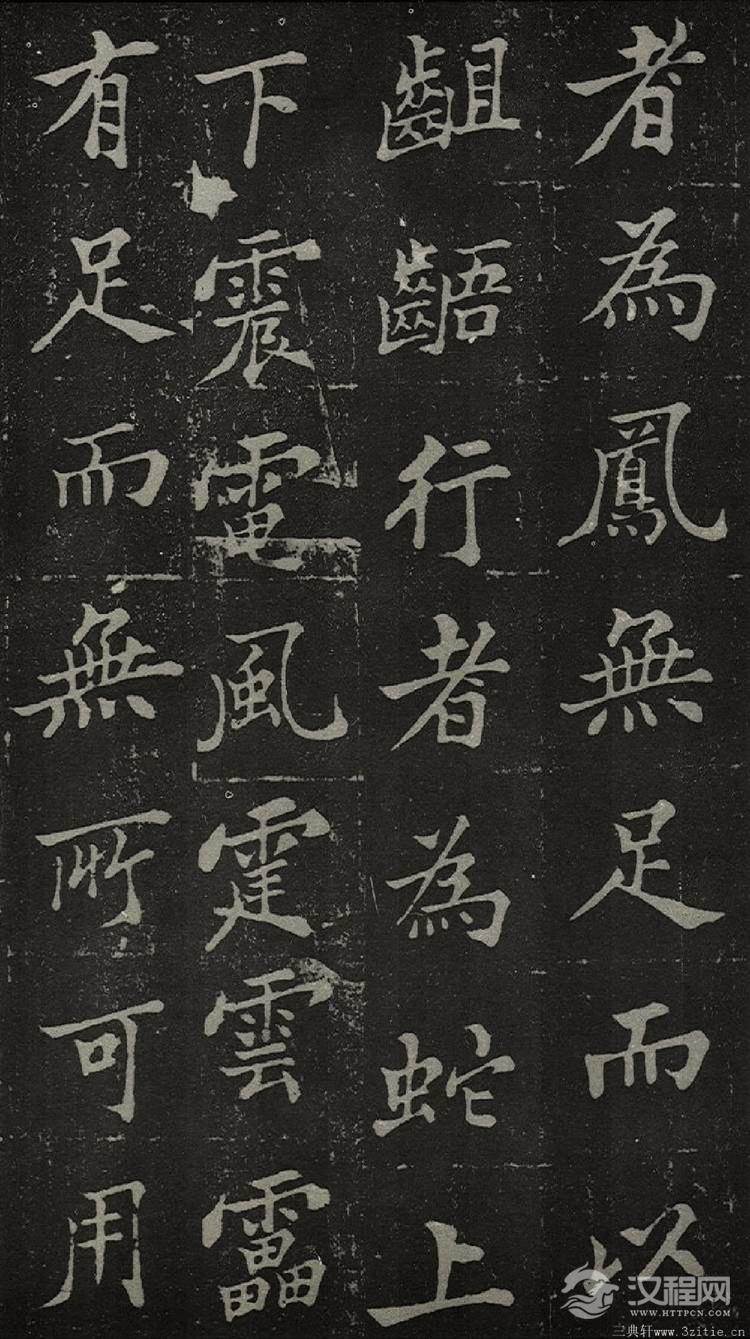 者為鳳無足而以
齟齬行者為蛇上
下震電風霆雲靁
有足而無所可用
汉程网
WWW.HTTPCN.COM
三典轩www.3zitie.cn